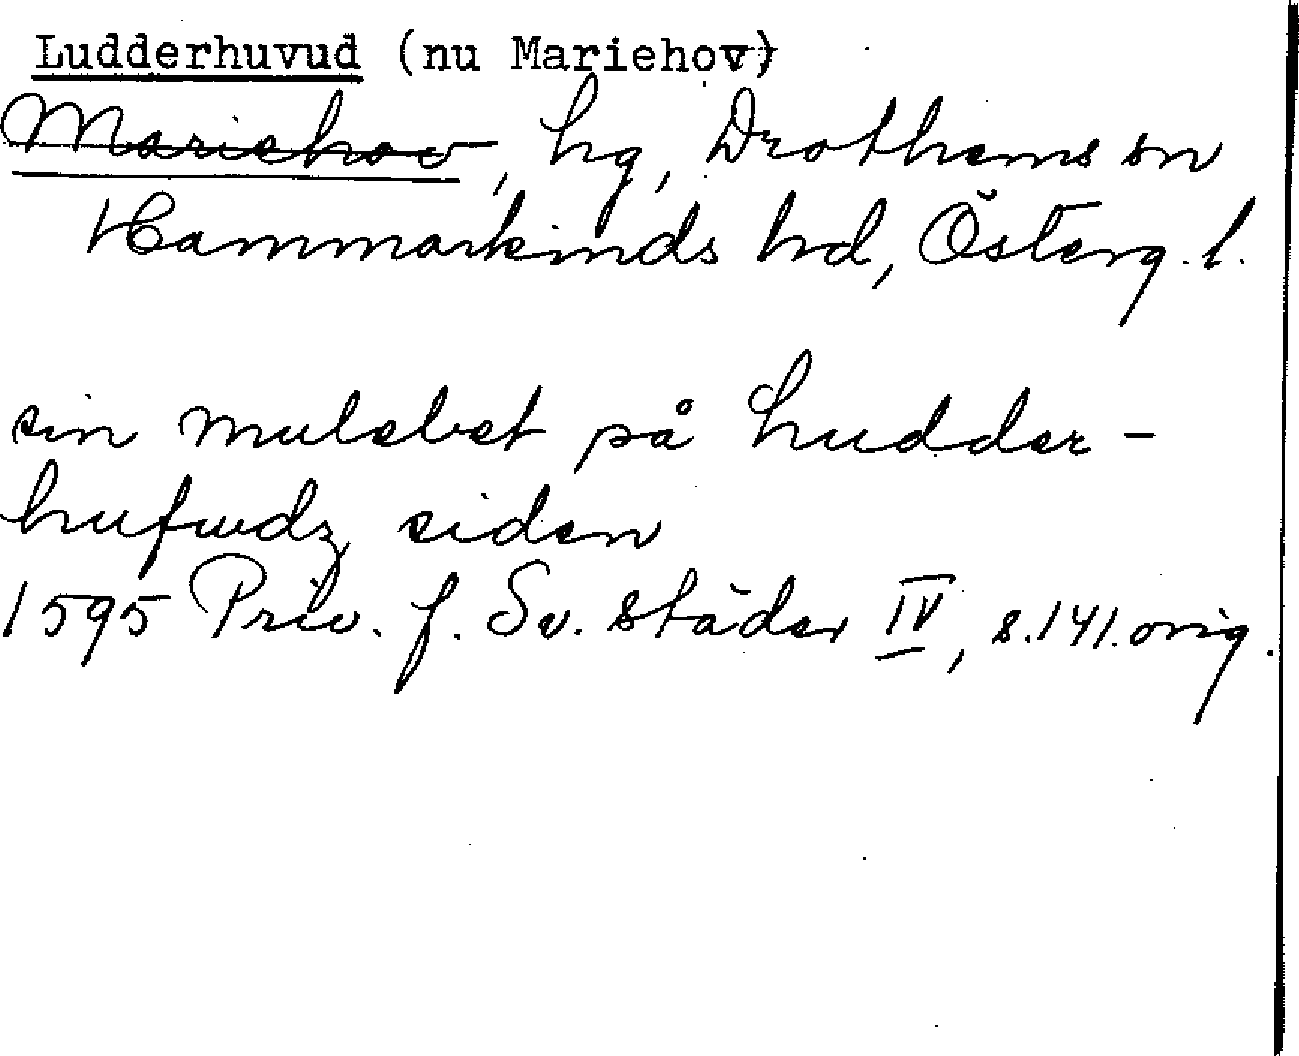 Ludderhuvud (nu Mariehov)
Mariehov, hg, Drothems sn
Hammarkinds hd, Österg. l.
sin mulebet på Ludder-
hufwdz siden
1595 Priv. f. Sv. städer IV, s. 141. orig.